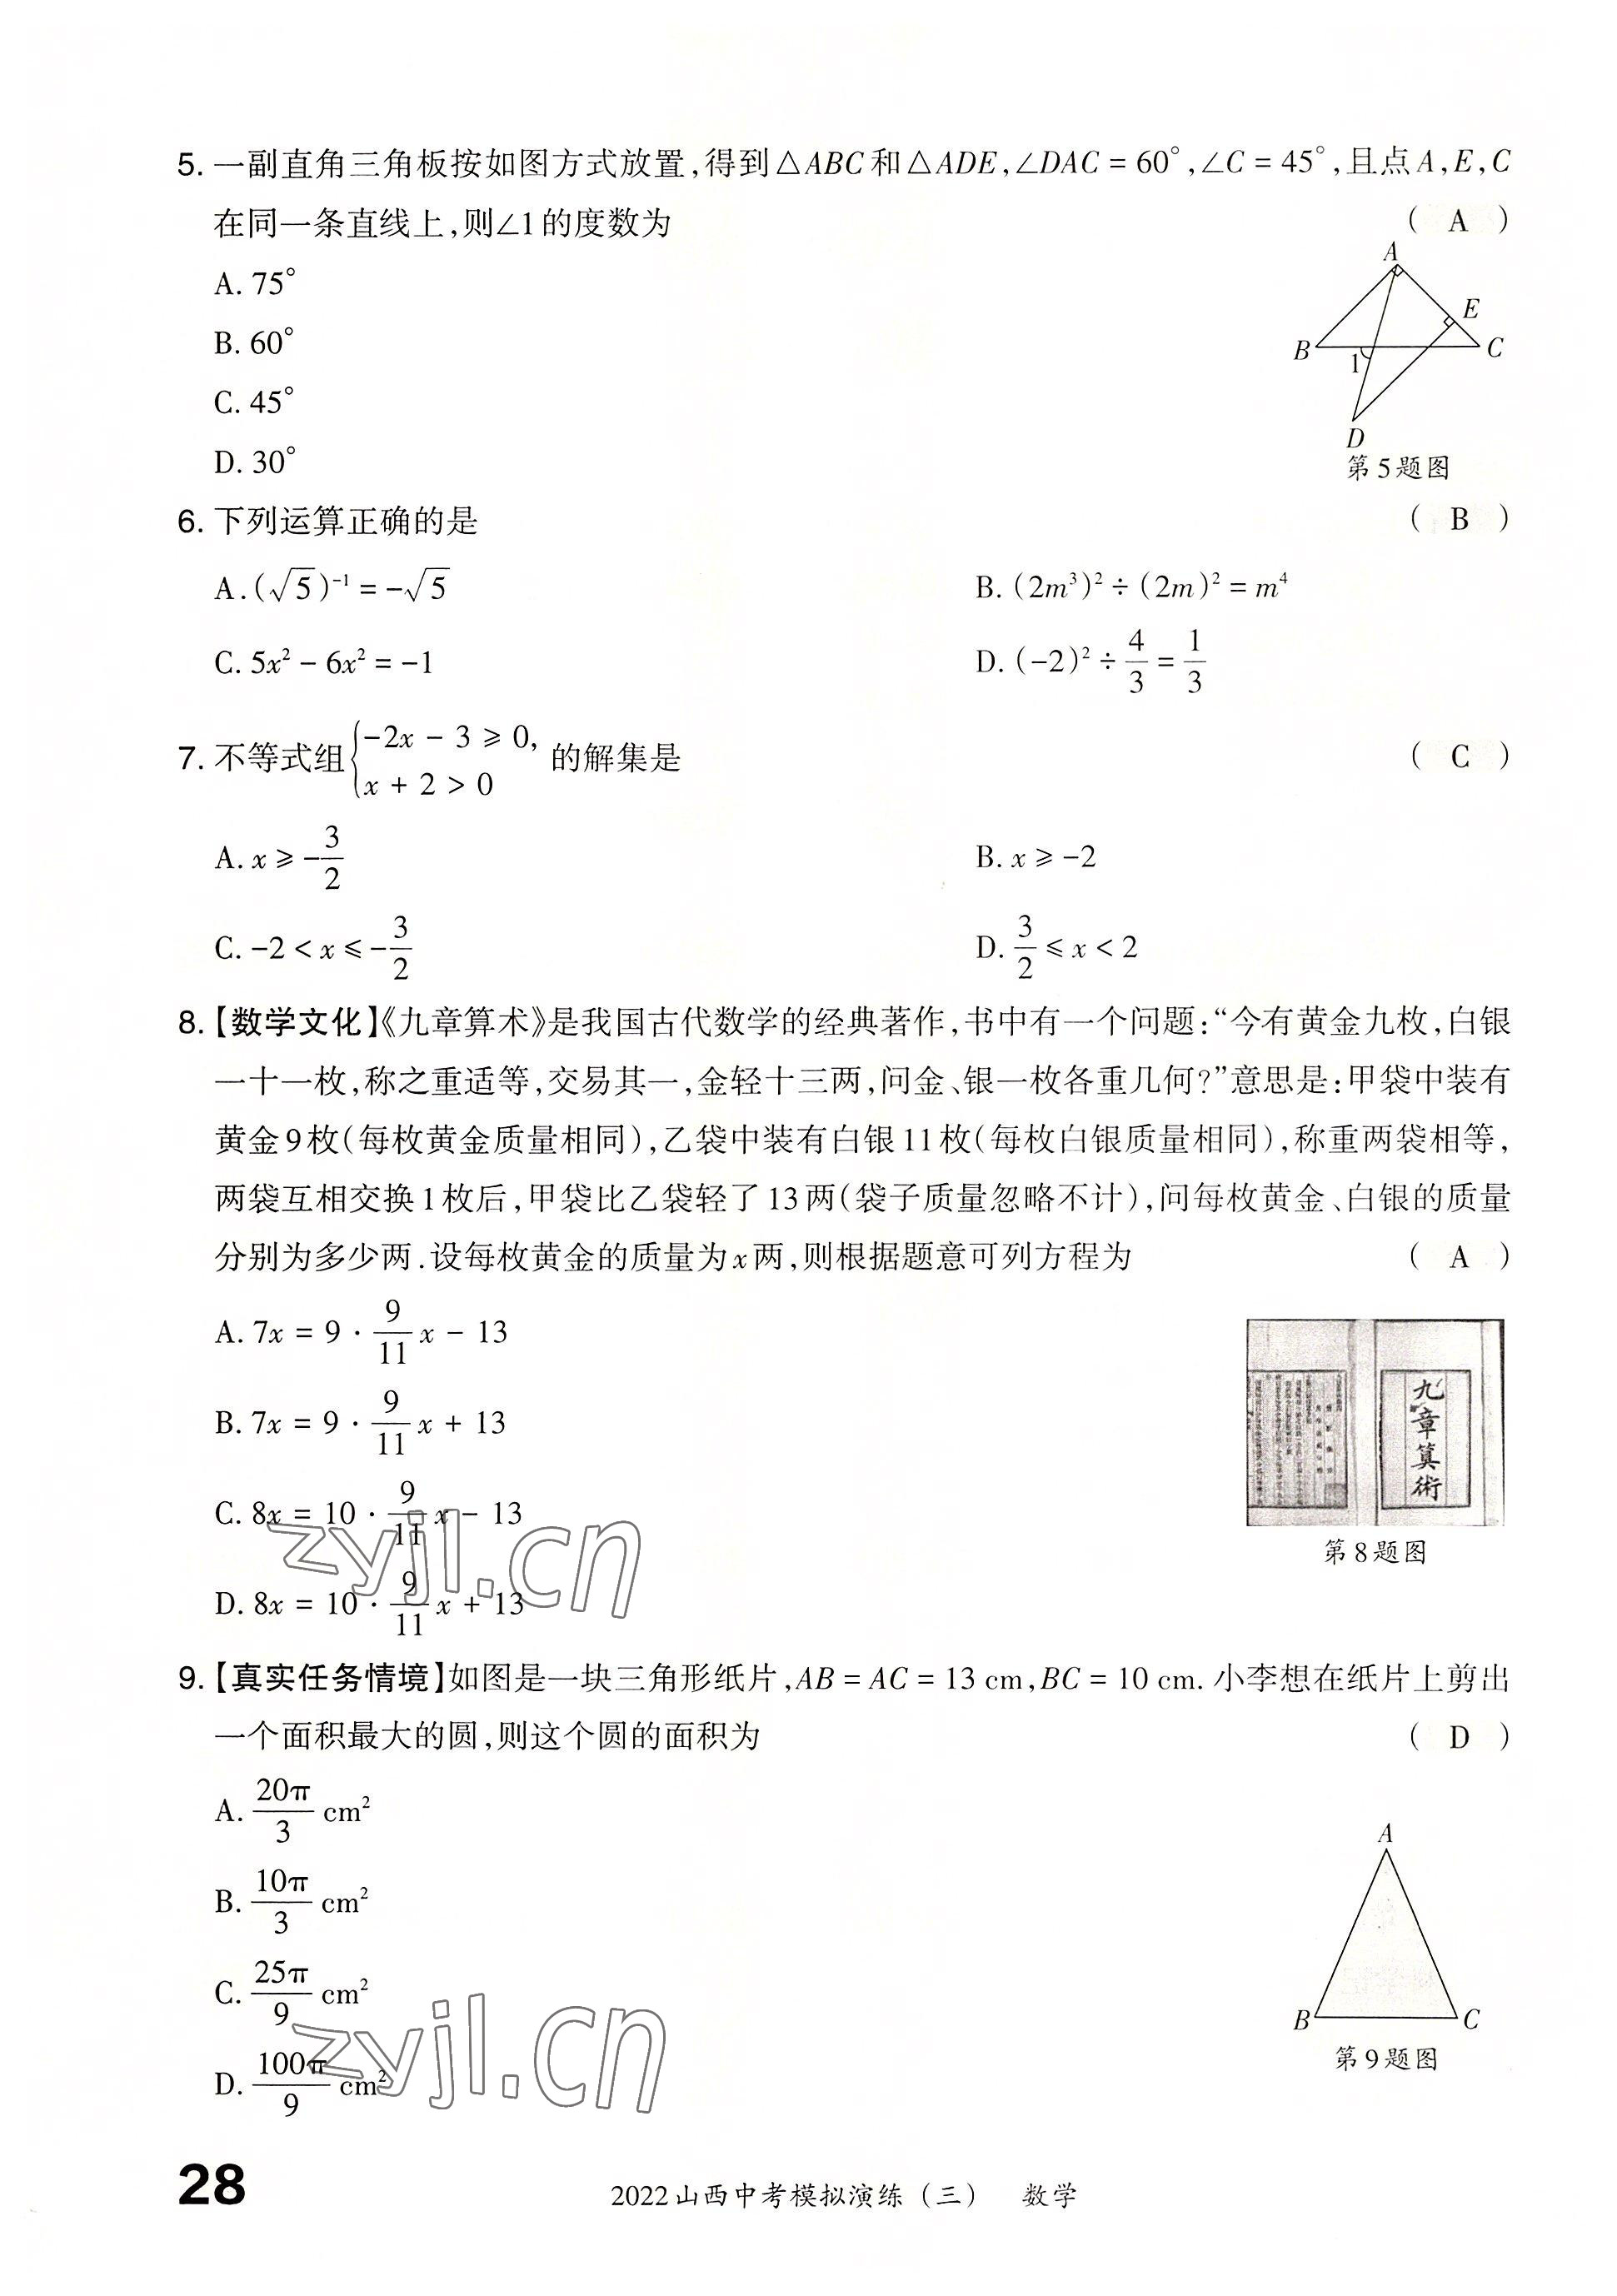 5. 一副直角三角板按如图方式放置,得到△ABC和△ADE,∠DAC = 60°,∠C = 45°,且点A,E,C
在同一条直线上,则∠1的度数为 ( A )
A. 75°
B. 60°
C. 45°
D. 30°
A
E
B
C
1
D
第5题图
6. 下列运算正确的是 ( B )
A.(√5)⁻¹ = -√5 B. (2m³)² ÷ (2m)² = m⁴
C. 5x² - 6x² = -1 D. (-2)² ÷ 4/3 = 1/3
7. 不等式组{-2x - 3 ≥ 0, x + 2 > 0 的解集是 ( C )
A. x ≥ -3/2 B. x ≥ -2
C. -2 < x ≤ -3/2 D. 3/2 ≤ x < 2
8.【数学文化】《九章算术》是我国古代数学的经典著作,书中有一个问题:“今有黄金九枚,白银
一十一枚,称之重适等,交易其一,金轻十三两,问金、银一枚各重几何?”意思是:甲袋中装有
黄金9枚(每枚黄金质量相同),乙袋中装有白银11枚(每枚白银质量相同),称重两袋相等,
两袋互相交换1枚后,甲袋比乙袋轻了13两(袋子质量忽略不计),问每枚黄金、白银的质量
分别为多少两.设每枚黄金的质量为x两,则根据题意可列方程为 ( A )
A. 7x = 9 · 9/11 x - 13
B. 7x = 9 · 9/11 x + 13
C. 8x = 10 · 9/11 x - 13
D. 8x = 10 · 9/11 x + 13
九章算術
第8题图
zyjl.cn
9.【真实任务情境】如图是一块三角形纸片,AB = AC = 13 cm,BC = 10 cm. 小李想在纸片上剪出
一个面积最大的圆,则这个圆的面积为 ( D )
A. 20π/3 cm²
B. 10π/3 cm²
C. 25π/9 cm²
D. 100π/9 cm²
A
B
C
第9题图
zyjl.cn
28
2022山西中考模拟演练(三) 数学